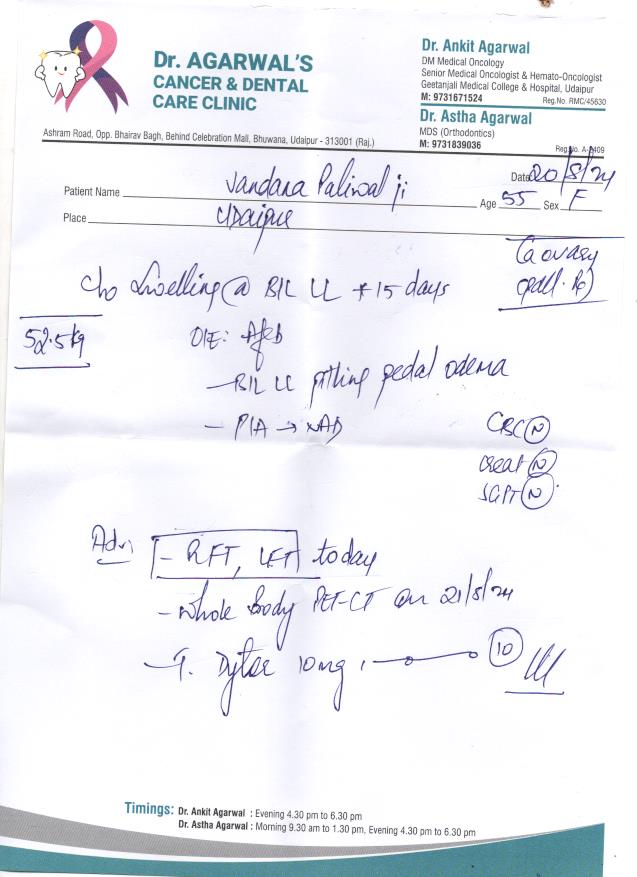 Dr. AGARWAL'S
CANCER & DENTAL
CARE CLINIC
Dr. Ankit Agarwal
DM Medical Oncology
Senior Medical Oncologist & Hemato-Oncologist
Geetanjali Medical College & Hospital, Udaipur
M: 9731671524 Reg.No. RMC/45630
Dr. Astha Agarwal
MDS (Orthodontics)
M: 9731839036 Reg.No. A-409
Ashram Road, Opp. Bhairav Bagh, Behind Celebration Mall, Bhuwana, Udaipur - 313001 (Raj.)
Date 20/8/24
Patient Name Vandana Paliwal ji Age 55 Sex F
Place Udaipur
Ca ovary
c/o Swelling @ B/L LL + 15 days
52.5 kg
O/E: Afeb
- B/L LL pitting pedal odema
- P/A → NAD
CBC (N)
Creat (N)
SGPT (N)
Adv
- RFT, LFT today
- Whole Body PET-CT on 21/8/24
- T. Dytor 10mg 1 —o—o (10)
Timings: Dr. Ankit Agarwal : Evening 4.30 pm to 6.30 pm
Dr. Astha Agarwal : Morning 9.30 am to 1.30 pm, Evening 4.30 pm to 6.30 pm